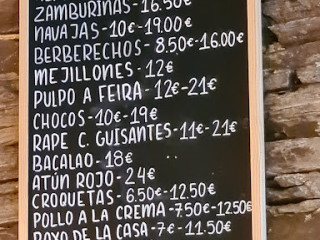 ZAMBURIÑAS-16.50€
NAVAJAS-10€-19.00€
BERBERECHOS-8.50€-16.00€
MEJILLONES-12€
PULPO A FEIRA-12€-21€
CHOCOS-10€-19€
RAPE C. GUISANTES-11€-21€
BACALAO-18€
ATÚN ROJO-24€
CROQUETAS-6.50€-12.50€
POLLO A LA CREMA-7.50€-12.50€
DE LA CASA-7€-11.50€